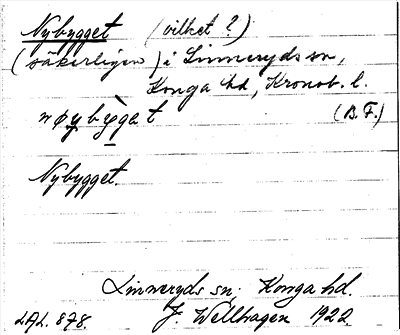 Nybygget (vilket?)
(säkerligen) i Linneryds sn,
Konga hd, Kronob. l.
nøybỳgat (B.F.)
Nybygget.
Linneryds sn. Konga hd.
LAL. 878. J. Wellhagen 1922